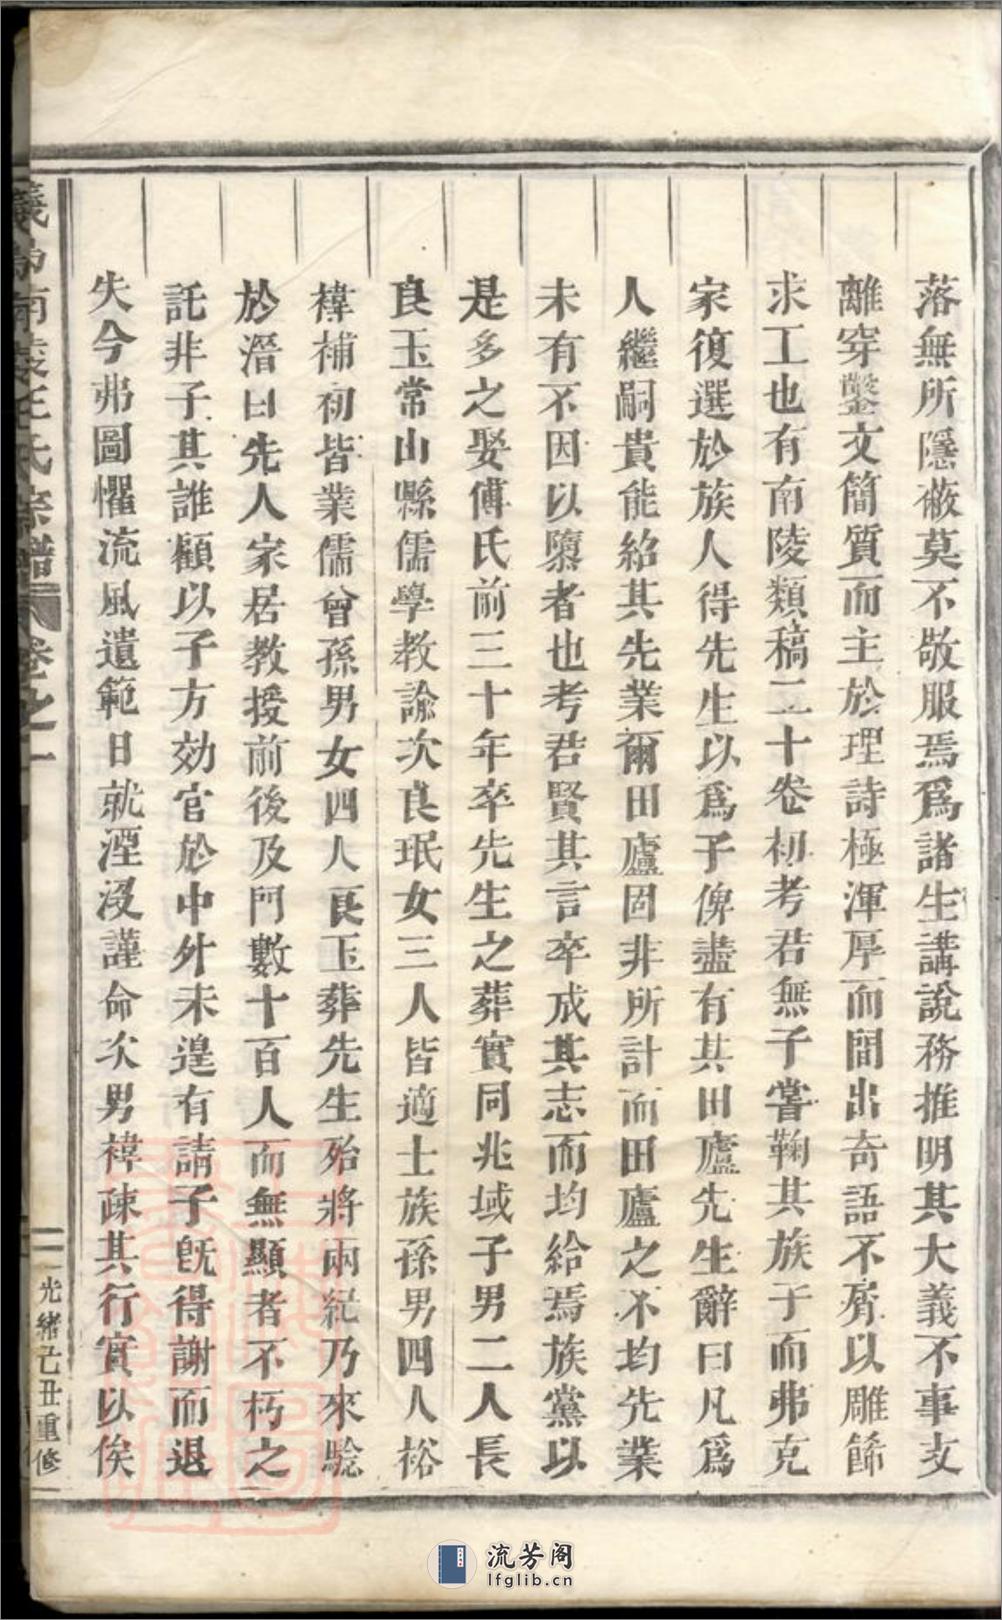 落無所隱蔽莫不敬服焉爲諸生講說務推明其大義不事支
離穿鑿文簡質而主於理詩極渾厚而間出奇語不屑以雕餙
求工也有南陵類稿二十卷初考君無子嘗鞠其族子而弗克
家復選於族人得先生以爲子俾盡有其田廬先生辭曰凡爲
人繼嗣貴能紹其先業爾田廬固非所計而田廬之不均先業
未有不因以隳者也考君賢其言卒成其志而均給焉族黨以
是多之娶傅氏前三十年卒先生之葬實同兆域子男二人長
良玉常山縣儒學教諭次良珉女三人皆適士族孫男四人裕
褘補初皆業儒曾孫男女四人良玉葬先生殆將兩紀乃來騐
於溍曰先人家居教授前後及門數十百人而無顯者不朽之
託非子其誰顧以子方効官於中外未遑有請子旣得謝而退
失今弗圖懼流風遺範日就湮沒謹命次男褘疎其行實以俟
義烏南陵王氏宗譜 卷之一
光緒己丑重修
流芳阁
lfglib.cn